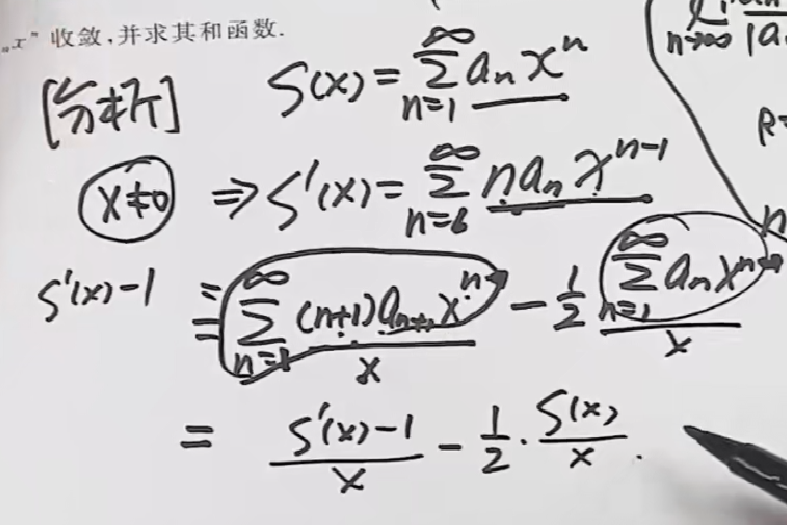 x^n 收敛,并求其和函数.
[分析] S(x) = \sum_{n=1}^{\infty} a_n x^n
x≠0 ⇒ S'(x) = \sum_{n=1}^{\infty} n a_n x^{n-1}
S'(x)-1 = \frac{\sum_{n=1}^{\infty} (n+1)a_{n+1} x^n}{x} - \frac{1}{2} \frac{\sum_{n=1}^{\infty} a_n x^n}{x}
= \frac{S'(x)-1}{x} - \frac{1}{2} · \frac{S(x)}{x}.